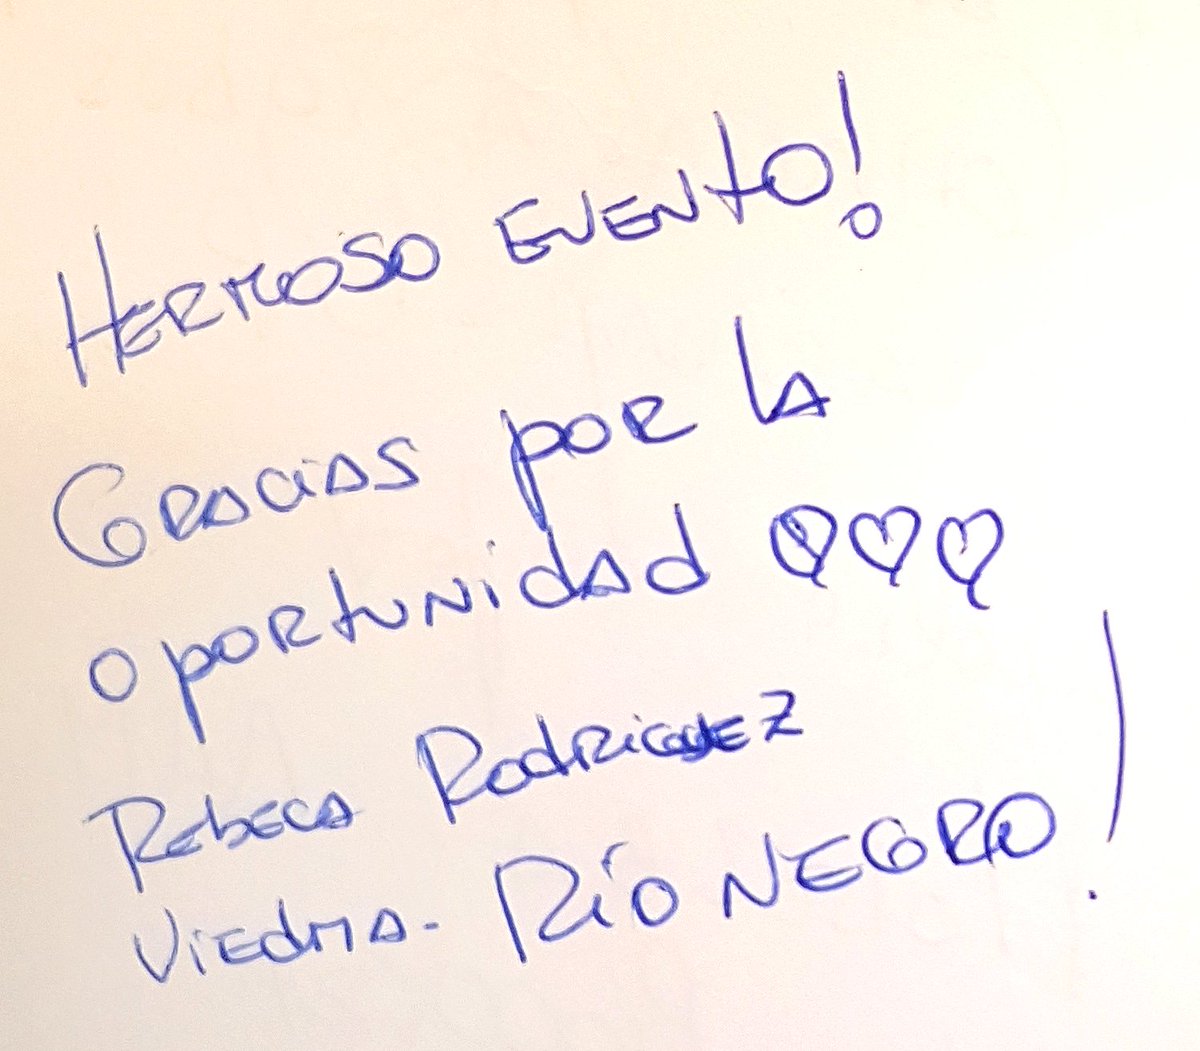 HERMOSO EVENTO!
GRACIAS POR LA
OPORTUNIDAD ♡♡♡
REBECA RODRIGUEZ
VIEDMA. RÍO NEGRO!